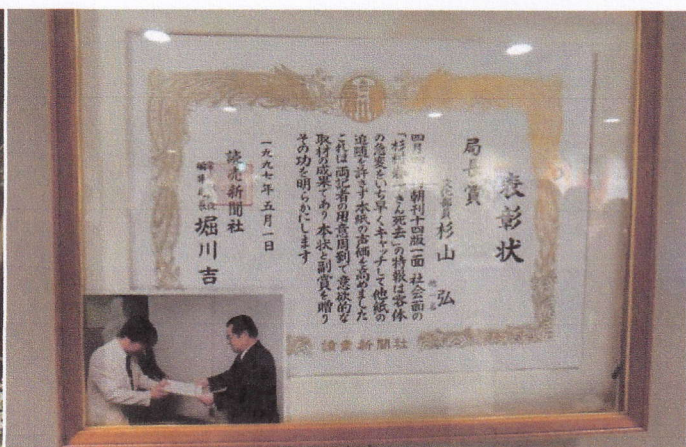 表彰状
局長賞
文化部員 杉山 弘
他一名
四月 朝刊十四版一面、社会面の
「杉村春子さん死去」の特報は容体
の急変をいち早くキャッチして他紙の
追随を許さず本紙の声価を高めました
これは両記者の用意周到で意欲的な
取材の成果であり本状と副賞を贈り
その功を明らかにします
一九九七年五月一日
読売新聞社
堀川吉
讀賣新聞社